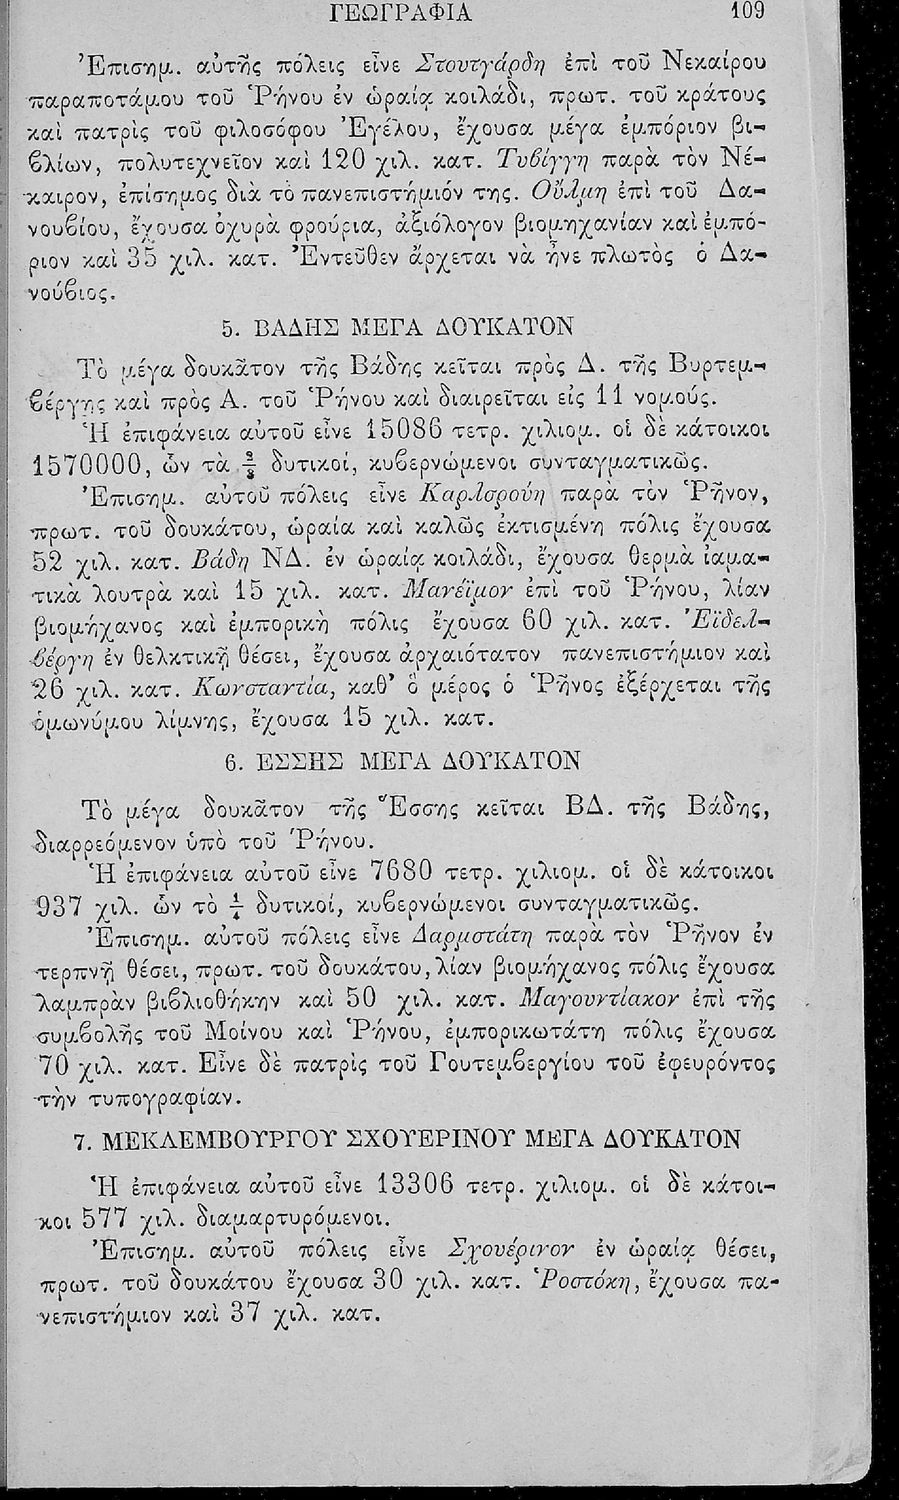 ΓΕΩΓΡΑΦΙΑ 109
Ἐπισημ. αὐτῆς πόλεις εἶνε Στουτγάρδη ἐπὶ τοῦ Νεκαίρου
παραποτάμου τοῦ Ῥήνου ἐν ὡραίᾳ κοιλάδι, πρωτ. τοῦ κράτους
καὶ πατρὶς τοῦ φιλοσόφου Ἐγέλου, ἔχουσα μέγα ἐμπόριον βι-
βλίων, πολυτεχνεῖον καὶ 120 χιλ. κατ. Τυβίγγη παρὰ τὸν Νέ-
καιρον, ἐπίσημος διὰ τὸ πανεπιστήμιόν της. Οὔλμη ἐπὶ τοῦ Δα-
νουβίου, ἔχουσα ὀχυρὰ φρούρια, ἀξιόλογον βιομηχανίαν καὶ ἐμπό-
ριον καὶ 35 χιλ. κατ. Ἐντεῦθεν ἄρχεται νὰ ἦνε πλωτὸς ὁ Δα-
νούβιος.
5. ΒΑΔΗΣ ΜΕΓΑ ΔΟΥΚΑΤΟΝ
Τὸ μέγα δουκᾶτον τῆς Βάδης κεῖται πρὸς Δ. τῆς Βυρτεμ-
βέργης καὶ πρὸς Α. τοῦ Ῥήνου καὶ διαιρεῖται εἰς 11 νομούς.
Ἡ ἐπιφάνεια αὐτοῦ εἶνε 15086 τετρ. χιλιομ. οἱ δὲ κάτοικοι
1570000, ὧν τὰ 2/3 δυτικοί, κυβερνώμενοι συνταγματικῶς.
Ἐπισημ. αὐτοῦ πόλεις εἶνε Καρλσρούη παρὰ τὸν Ῥῆνον,
πρωτ. τοῦ δουκάτου, ὡραία καὶ καλῶς ἐκτισμένη πόλις ἔχουσα
52 χιλ. κατ. Βάδη ΝΔ. ἐν ὡραίᾳ κοιλάδι, ἔχουσα θερμὰ ἰαμα-
τικὰ λουτρὰ καὶ 15 χιλ. κατ. Μανέϊμον ἐπὶ τοῦ Ῥήνου, λίαν
βιομήχανος καὶ ἐμπορικὴ πόλις ἔχουσα 60 χιλ. κατ. Ἐϊδελ-
βέργη ἐν θελκτικῇ θέσει, ἔχουσα ἀρχαιότατον πανεπιστήμιον καὶ
26 χιλ. κατ. Κωνσταντία, καθ' ὃ μέρος ὁ Ῥῆνος ἐξέρχεται τῆς
ὁμωνύμου λίμνης, ἔχουσα 15 χιλ. κατ.
6. ΕΣΣΗΣ ΜΕΓΑ ΔΟΥΚΑΤΟΝ
Τὸ μέγα δουκᾶτον τῆς Ἕσσης κεῖται ΒΔ. τῆς Βάδης,
διαρρεόμενον ὑπὸ τοῦ Ῥήνου.
Ἡ ἐπιφάνεια αὐτοῦ εἶνε 7680 τετρ. χιλιομ. οἱ δὲ κάτοικοι
937 χιλ. ὧν τὸ 1/4 δυτικοί, κυβερνώμενοι συνταγματικῶς.
Ἐπισημ. αὐτοῦ πόλεις εἶνε Δαρμστάτη παρὰ τὸν Ῥῆνον ἐν
τερπνῇ θέσει, πρωτ. τοῦ δουκάτου, λίαν βιομήχανος πόλις ἔχουσα
λαμπρὰν βιβλιοθήκην καὶ 50 χιλ. κατ. Μαγουντίακον ἐπὶ τῆς
συμβολῆς τοῦ Μοίνου καὶ Ῥήνου, ἐμπορικωτάτη πόλις ἔχουσα
70 χιλ. κατ. Εἶνε δὲ πατρὶς τοῦ Γουτεμβεργίου τοῦ ἐφευρόντος
τὴν τυπογραφίαν.
7. ΜΕΚΛΕΜΒΟΥΡΓΟΥ ΣΧΟΥΕΡΙΝΟΥ ΜΕΓΑ ΔΟΥΚΑΤΟΝ
Ἡ ἐπιφάνεια αὐτοῦ εἶνε 13306 τετρ. χιλιομ. οἱ δὲ κάτοι-
κοι 577 χιλ. διαμαρτυρόμενοι.
Ἐπισημ. αὐτοῦ πόλεις εἶνε Σχουέρινον ἐν ὡραίᾳ θέσει,
πρωτ. τοῦ δουκάτου ἔχουσα 30 χιλ. κατ. Ῥοστόκη, ἔχουσα πα-
νεπιστήμιον καὶ 37 χιλ. κατ.